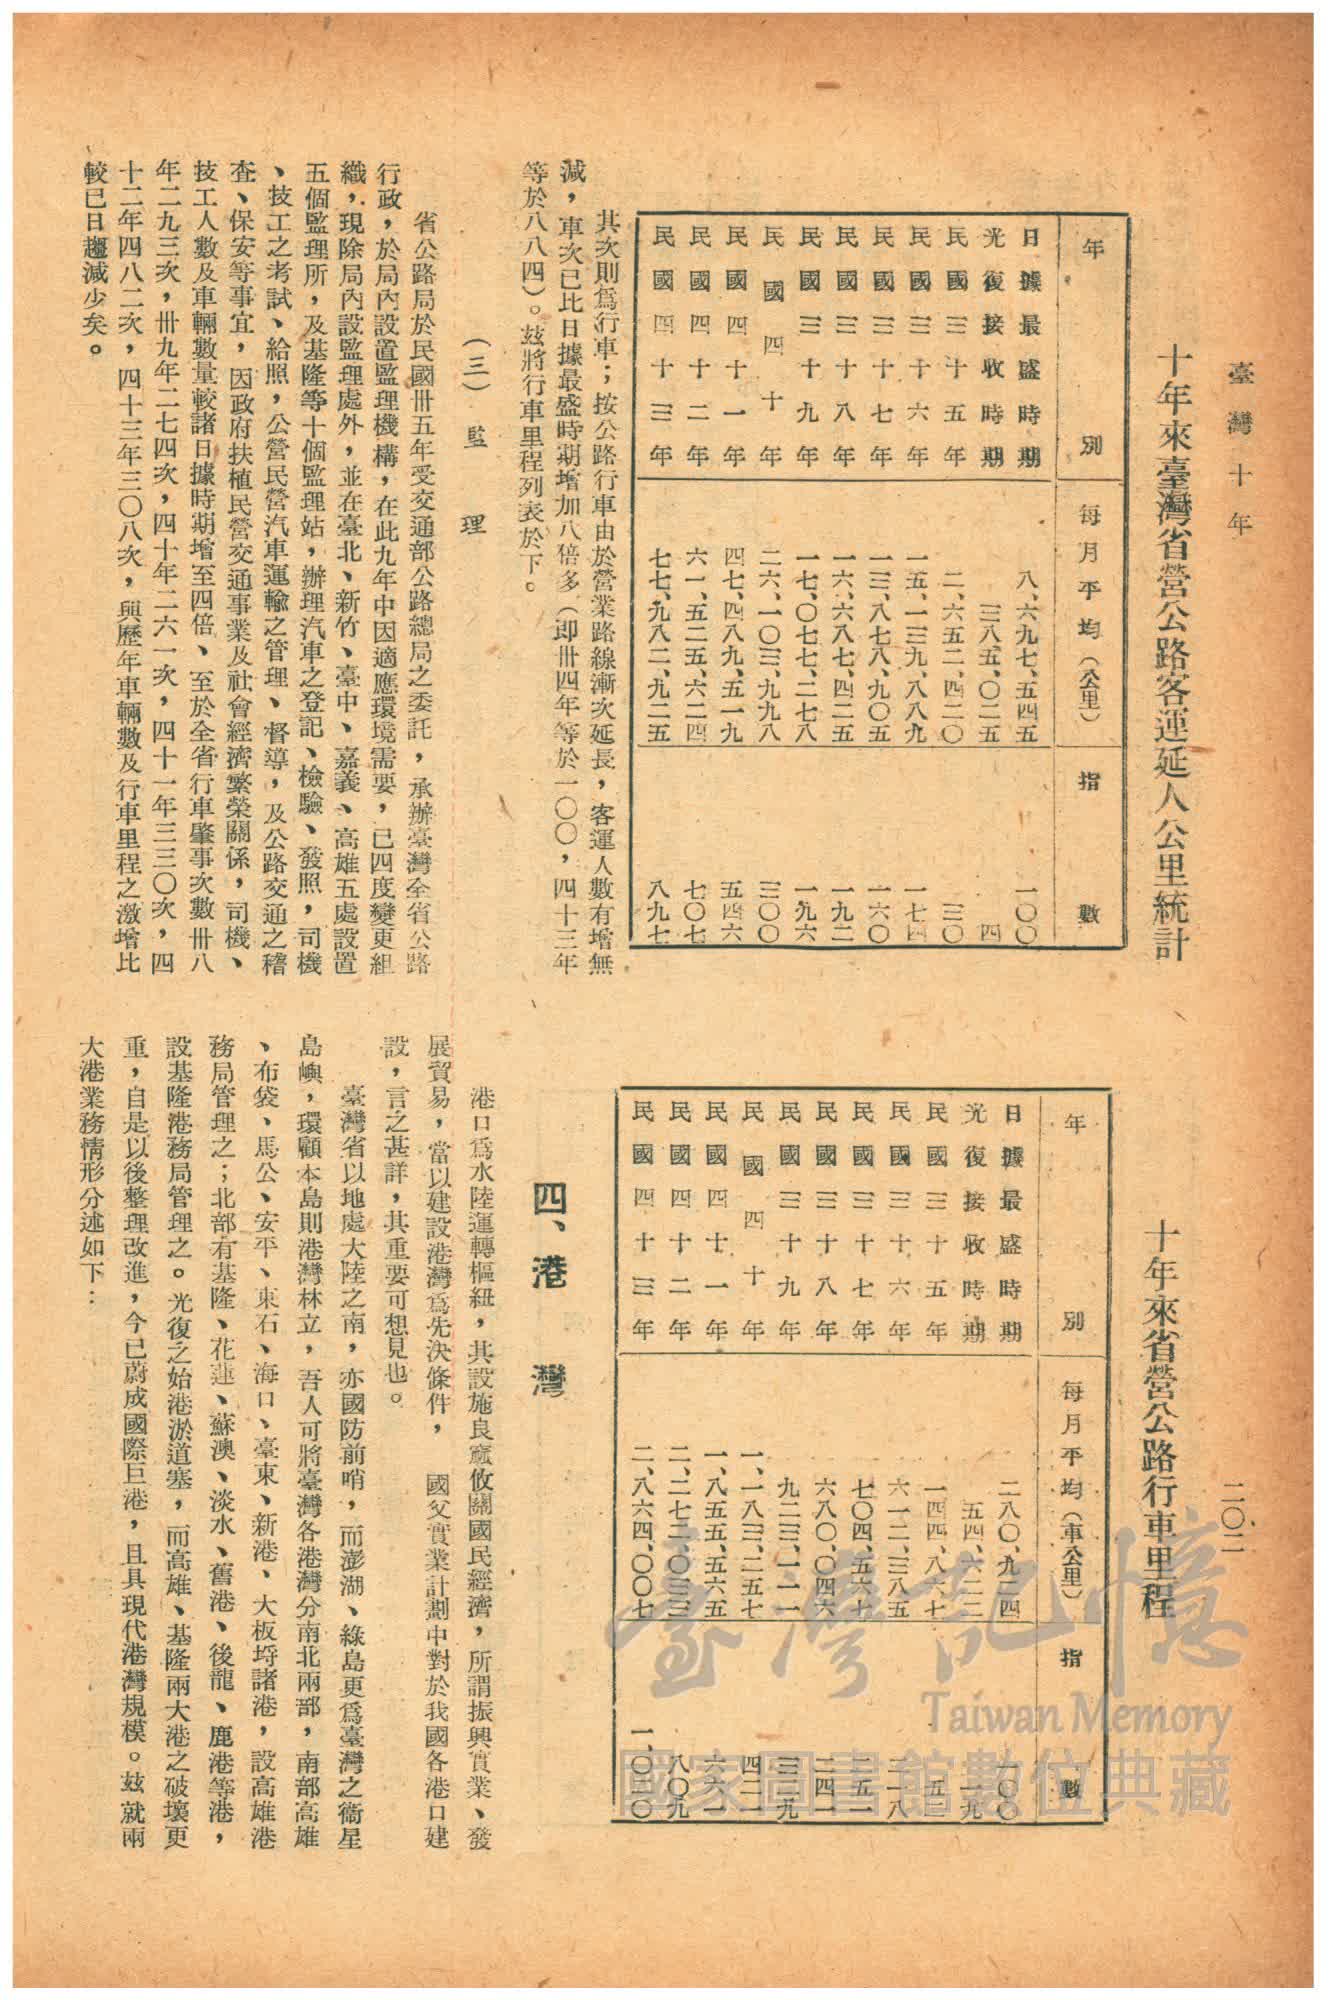 臺灣十年
二〇二
十年來臺灣省營公路客運延人公里統計
年別 每月平均（公里） 指數
日據最盛時期 八、六九七、五四五 一〇〇
光復接收時期 三八五、〇二五 四
民國三十五年 二、六五二、四二〇 三〇
民國三十六年 一五、一三九、八八九 一七四
民國三十七年 一三、八七八、九〇五 一六〇
民國三十八年 一六、六八七、四二五 一九二
民國三十九年 一七、〇七七、二七八 一九六
民國四十年 二六、一〇三、九九八 三〇〇
民國四十一年 四七、四八九、五一九 五四六
民國四十二年 六一、五二五、六二四 七〇七
民國四十三年 七七、九八二、九二五 八九七
其次則爲行車；按公路行車由於營業路線漸次延長，客運人數有增無
減，車次已比日據最盛時期增加八倍多（即卅四年等於一〇〇，四十三年
等於八八四）。玆將行車里程列表於下。
（三）監理
省公路局於民國卅五年受交通部公路總局之委託，承辦臺灣全省公路
行政，於局內設置監理機構，在此九年中因適應環境需要，已四度變更組
織，現除局內設監理處外，並在臺北、新竹、臺中、嘉義、高雄五處設置
五個監理所，及基隆等十個監理站，辦理汽車之登記、檢驗、發照，司機
、技工之考試、給照，公營民營汽車運輸之管理、督導，及公路交通之稽
查、保安等事宜，因政府扶植民營交通事業及社會經濟繁榮關係，司機、
技工人數及車輛數量較諸日據時期增至四倍、至於全省行車肇事次數卅八
年二九三次，卅九年二七四次，四十年二六一次，四十一年三三〇次，四
十二年四八二次，四十三年三〇八次，與歷年車輛數及行車里程之激增比
較已日趨減少矣。
十年來省營公路行車里程
年別 每月平均（車公里） 指數
日據最盛時期 二八〇、九二四 一〇〇
光復接收時期 五四、六二二 一九
民國三十五年 一四四、八六七 五二
民國三十六年 六一二、三八五 二一八
民國三十七年 七〇四、五六七 二五一
民國三十八年 六八〇、〇四六
民國三十九年 九二三、一一一 三二九
民國四十年 一、一八三、二五七 四二一
民國四十一年 一、八五五、五六五 六六一
民國四十二年 二、二七二、〇三三 八〇九
民國四十三年 二、八六四、〇〇七 一、〇二〇
四、港灣
港口爲水陸運轉樞紐，其設施良窳攸關國民經濟，所謂振興實業、發
展貿易，當以建設港灣爲先決條件，　國父實業計劃中對於我國各港口建
設，言之甚詳，其重要可想見也。
臺灣省以地處大陸之南，亦國防前哨，而澎湖、綠島更爲臺灣之衞星
島嶼，環顧本島則港灣林立，吾人可將臺灣各港灣分南北兩部，南部高雄
、布袋、馬公、安平、東石、海口、臺東、新港、大板埓諸港，設高雄港
務局管理之；北部有基隆、花蓮、蘇澳、淡水、舊港、後龍、鹿港等港，
設基隆港務局管理之。光復之始港淤道塞，而高雄、基隆兩大港之破壞更
重，自是以後整理改進，今已蔚成國際巨港，且具現代港灣規模。玆就兩
大港業務情形分述如下：
臺灣記憶
Taiwan Memory
國家圖書館數位典藏